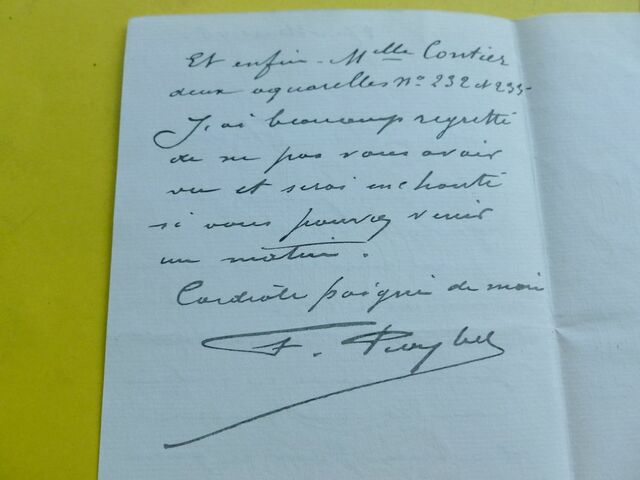 Et enfin - Mlle Contier
deux aquarelles No 232 et 235-
J'ai beaucoup regretté
de ne pas vous avoir
vu et serai enchanté
si vous pouvez venir
un matin.
Cordiale poignée de main
F. Roybet